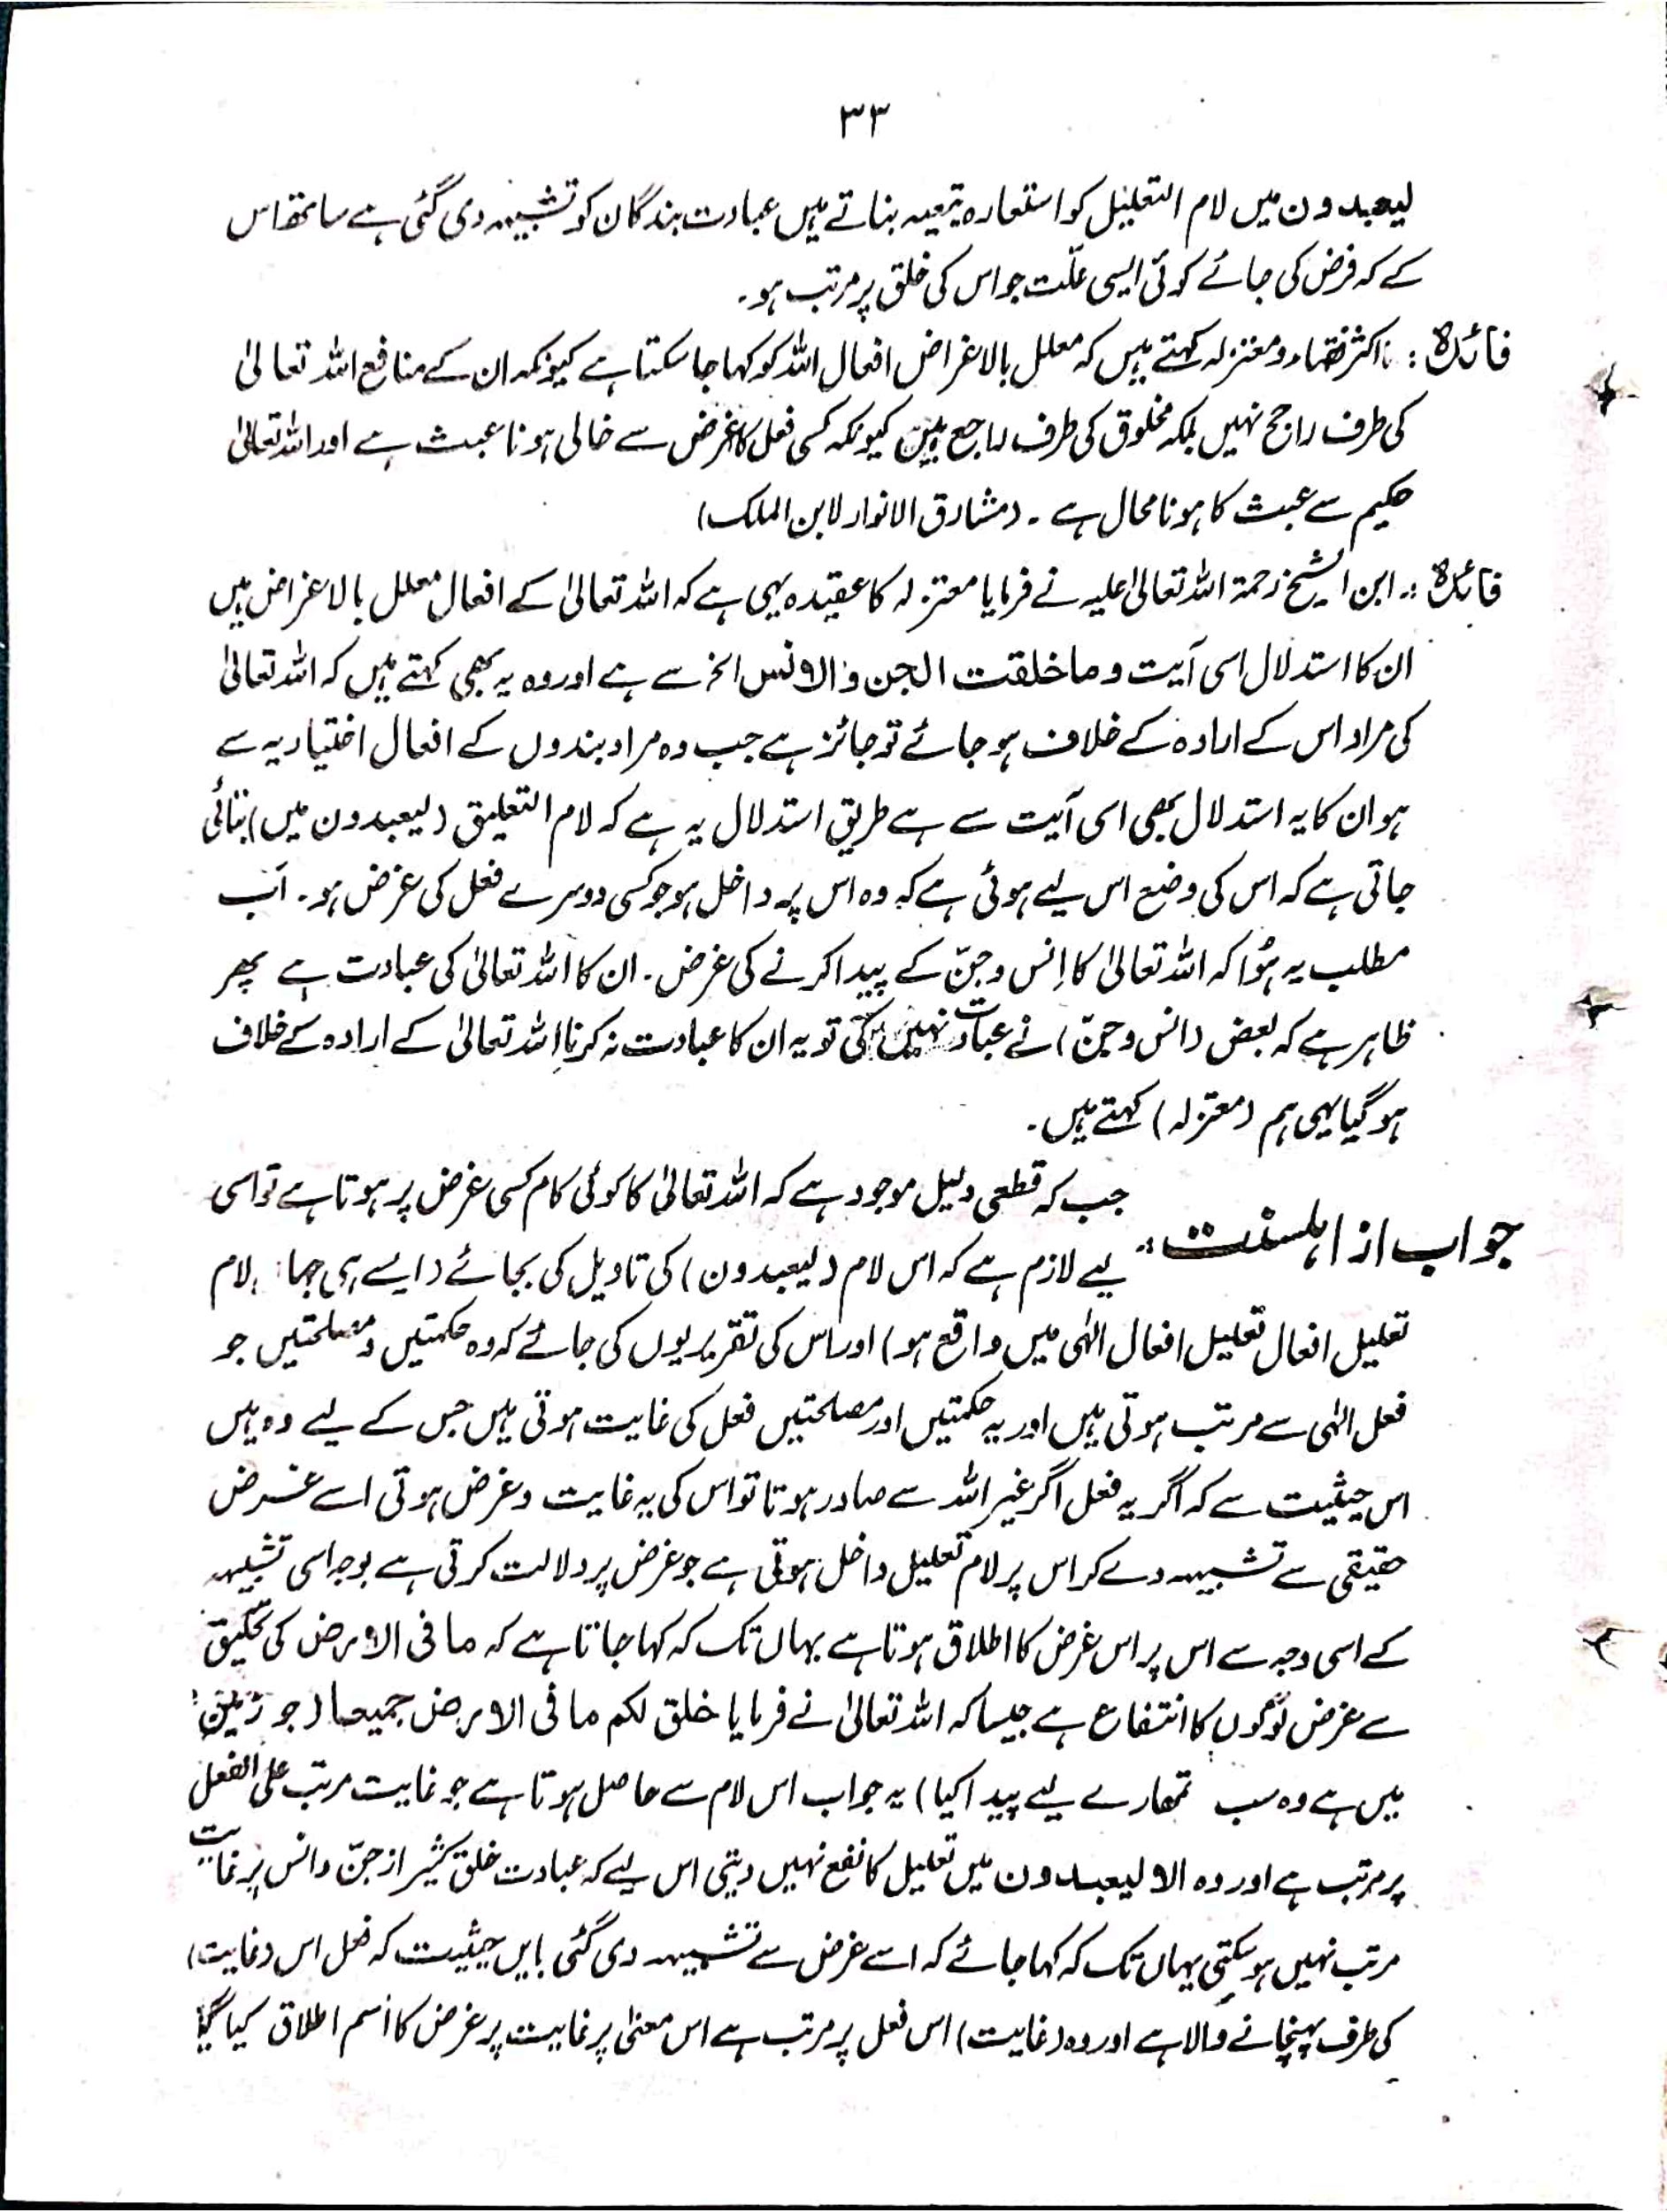 ۳۳
لیعبدون میں لام التعلیل کو استعارہ تبعیہ بناتے ہیں عبادت بندگان کو تشبیہہ دی گئی ہے ساتھ اس
کے کہ فرض کی جائے کوئی ایسی علّت جو اس کی خلق پر مرتب ہو۔
فائدہ : اکثر فقہاء و معتزلہ کہتے ہیں کہ معلل بالاغراض افعال اللہ کو کہا جا سکتا ہے کیونکہ ان کے منافع اللہ تعالیٰ
کی طرف راجع نہیں بلکہ مخلوق کی طرف راجع ہیں کیونکہ کسی فعل کا غرض سے خالی ہونا عبث ہے اور اللہ تعالیٰ
حکیم سے عبث کا ہونا محال ہے ۔ (مشارق الانوار لابن الملک)
فائدہ :۔ ابن الشیخ رحمۃ اللہ تعالیٰ علیہ نے فرمایا معتزلہ کا عقیدہ یہی ہے کہ اللہ تعالیٰ کے افعال معلل بالاغراض ہیں
ان کا استدلال اسی آیت وما خلقت الجن والانس الخ سے ہے اور وہ یہ بھی کہتے ہیں کہ اللہ تعالیٰ
کی مراد اس کے ارادہ کے خلاف ہو جائے تو جائز ہے جب وہ مراد بندوں کے افعال اختیاریہ سے
ہو ان کا یہ استدلال بھی اسی آیت سے ہے طریق استدلال یہ ہے کہ لام التعلیق (لیعبدون میں) بتائی
جاتی ہے کہ اس کی وضع اس لیے ہوئی ہے کہ وہ اس پر داخل ہو جو کسی دوسرے فعل کی غرض ہو۔ اَب
مطلب یہ ہُوا کہ اللہ تعالیٰ کا اِنس و جنّ کے پیدا کرنے کی غرض ۔ ان کا اللہ تعالیٰ کی عبادت ہے پھر
ظاہر ہے کہ بعض (انس و جنّ) نے عبادت نہیں کی تو یہ ان کا عبادت نہ کرنا اللہ تعالیٰ کے ارادہ کے خلاف
ہو گیا یہی ہم (معتزلہ) کہتے ہیں ۔
جب کہ قطعی دلیل موجود ہے کہ اللہ تعالیٰ کا کوئی کام کسی غرض پر ہوتا ہے تو اسی
جواب از اہلسنت :۔ لیے لازم ہے کہ اس لام (لیعبدون) کی تاویل کی بجائے (ایسے ہی جہاں لام
تعلیل افعال تعلیل افعال الٰہی میں واقع ہو) اور اس کی تقریر یوں کی جائے کہ وہ حکمتیں و مصلحتیں جو
فعل الٰہی سے مرتب ہوتی ہیں اور یہ حکمتیں اور مصلحتیں فعل کی غایت ہوتی ہیں جس کے لیے وہ ہیں
اس حیثیت سے کہ اگر یہ فعل اگر غیر اللہ سے صادر ہوتا تو اس کی یہ غایت و غرض ہوتی اسے غرض
حقیقی سے تشبیہہ دے کر اس پر لام تعلیل داخل ہوتی ہے جو غرض پر دلالت کرتی ہے بوجہ اسی تشبیہہ
کے اسی وجہ سے اس پر اس غرض کا اطلاق ہوتا ہے یہاں تک کہ کہا جاتا ہے کہ ما فی الارض کی تخلیق
سے غرض لوگوں کا انتفاع ہے جیسا کہ اللہ تعالیٰ نے فرمایا خلق لکم ما فی الارض جمیعا (جو زمین
میں ہے وہ سب تمھارے لیے پیدا کیا) یہ جواب اس لام سے حاصل ہوتا ہے جو غایت مرتب علی الفعل
پر مرتب ہے اور وہ الا لیعبدون میں تعلیل کا نفع نہیں دیتی اس لیے کہ عبادت خلق کثیر از جنّ و انس پر غایت
مرتب نہیں ہو سکتی یہاں تک کہ کہا جائے کہ اسے غرض سے تشبیہہ دی گئی بایں حیثیت کہ فعل اس (غایت)
کی طرف پہنچانے والا ہے اور وہ (غایت) اس فعل پر مرتب ہے اس معنیٰ پر غایت پر غرض کا اسم اطلاق کیا گیا